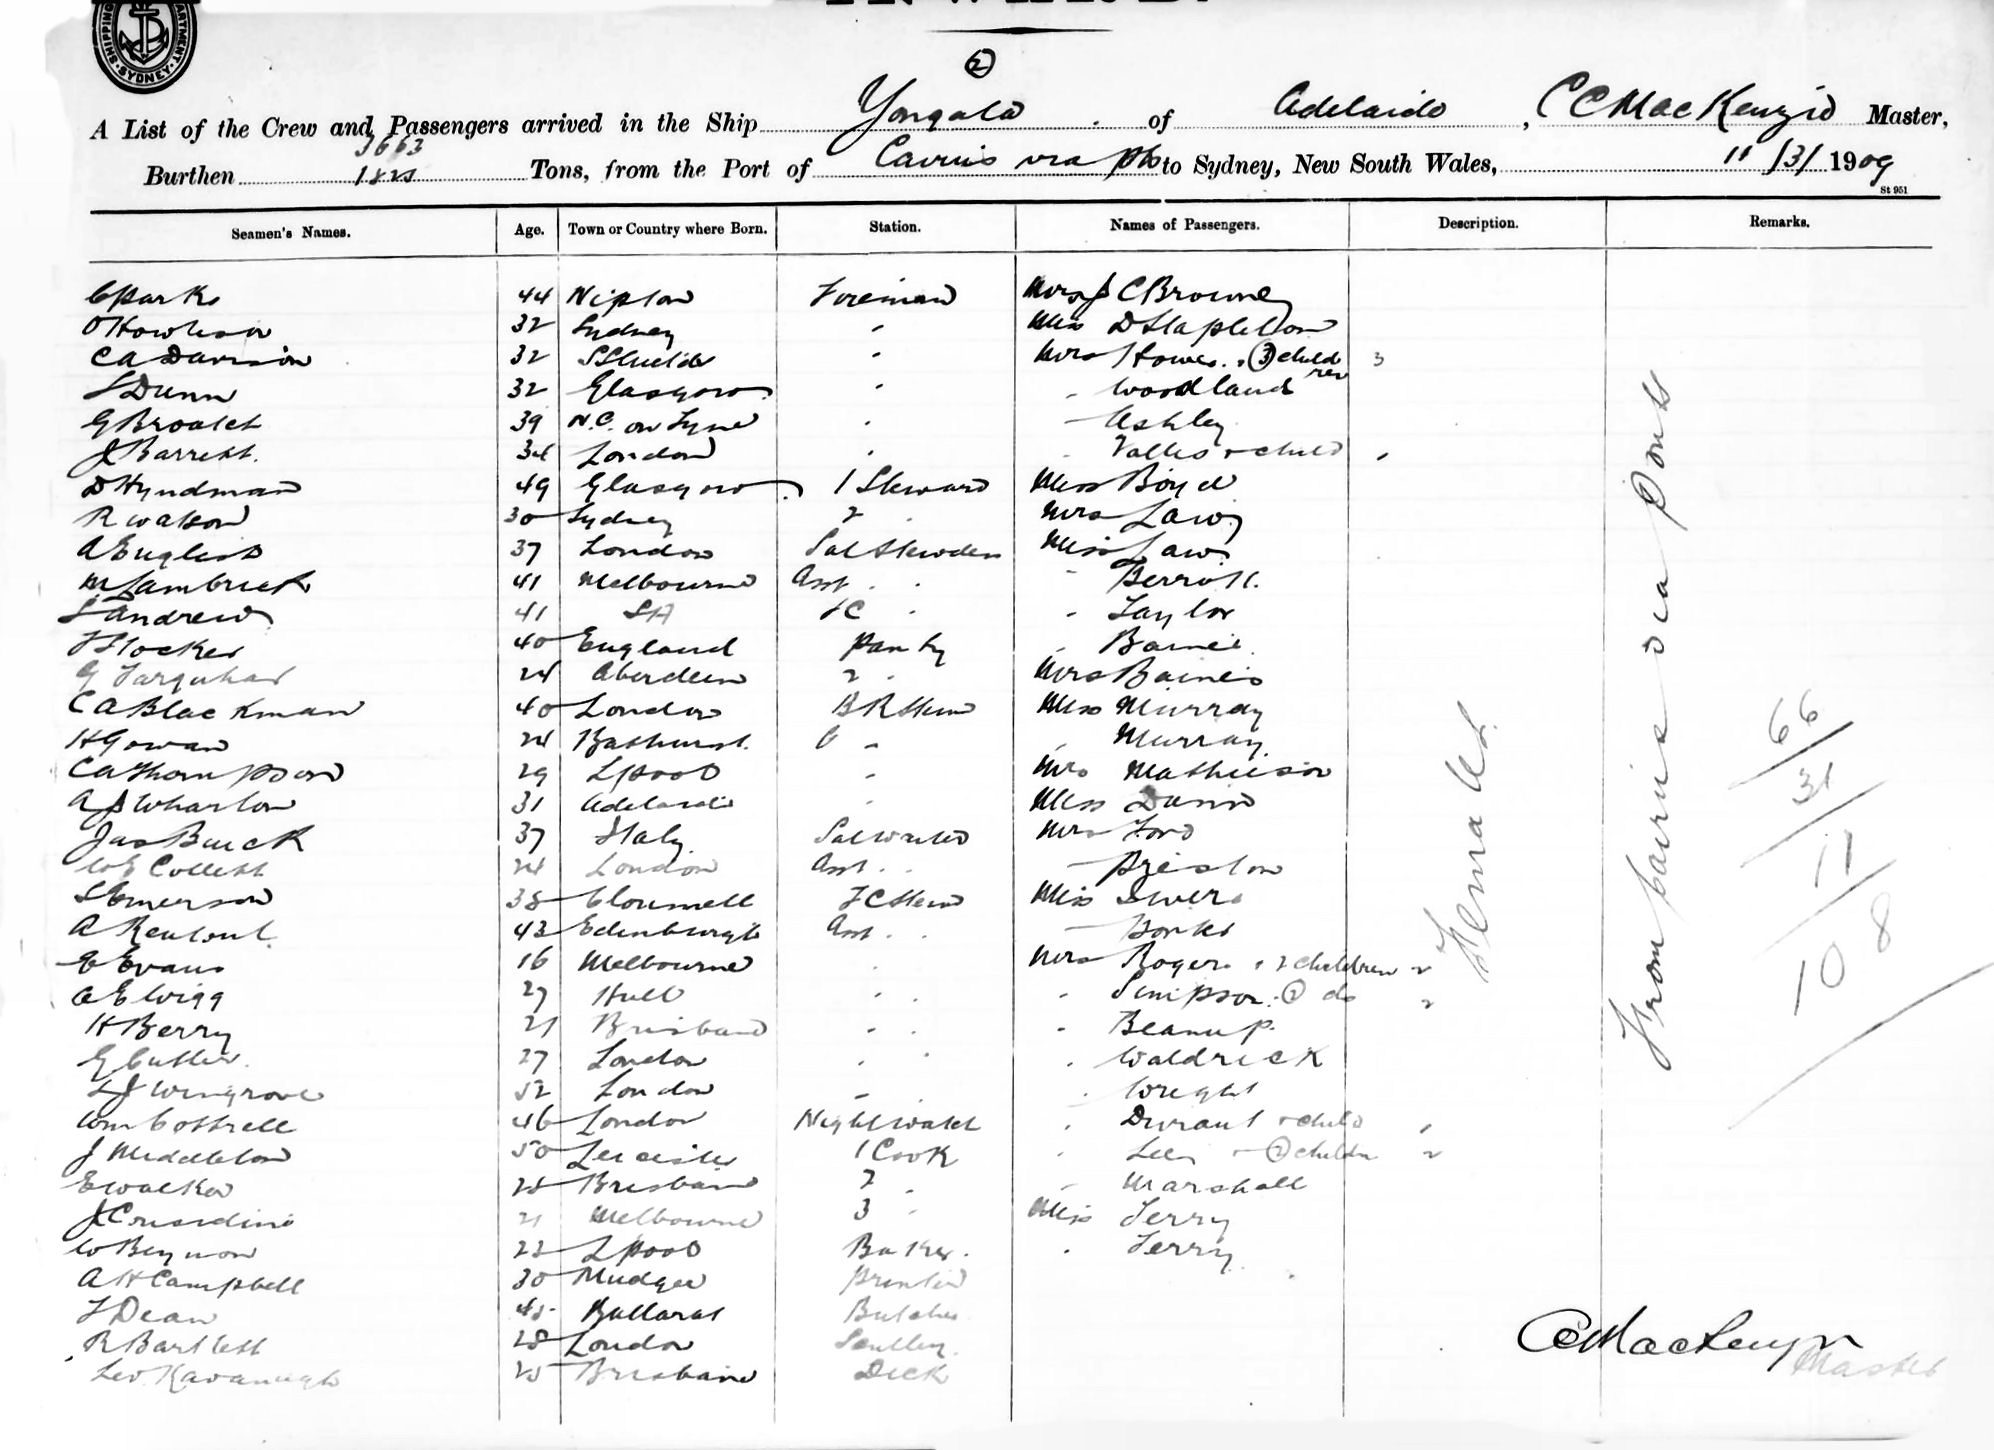 SHIPPING DEPARTMENT SYDNEY
INWARD.
2
A List of the Crew and Passengers arrived in the Ship Yongala of Adelaide, CC MacKenzie Master,
3663
Burthen 1825 Tons, from the Port of Cairns via pts to Sydney, New South Wales, 11/3/1909
St 951
Seamen's Names. Age. Town or Country where Born. Station. Names of Passengers. Description. Remarks.
C Parks 44 Foreman Mrs J C Browne
32 Sydney " Miss D Stapleton
C A Davison 32 S Shields " Mrs Howes 3 children 3
S Dunn 32 Glasgow " " Woodland
G 39 N.C. on Tyne " " Ashley
J Barrett 34 London " " & child
D Hyndman 49 Glasgow 1 Steward Miss Boyd
R Watson 30 Sydney 2 " Mrs Law
A English 37 London Sal Stewdess Miss Law
M Lambrick 41 Melbourne Asst " " "
S Andrew 41 SA " " Taylor
T Stocker 40 England Pantry "
G Farquhar 24 Aberdeen 2 " Mrs Baines
C A Blackman 40 London B R Stew Miss Murray
H Gowan 24 Bathurst " " Murray
C A Thompson 29 Lpool " Mrs Mathieson
A J Wharton 31 Adelaide " Miss Dunn
Jas Buick 37 Italy Sal Waiter Mrs Ford
W E Collett 24 London Asst " " " Preston
S Emerson 38 Clonmell Stew Miss
A Rentoul 43 Edinburgh Asst " " "
E Evans 16 Melbourne " Mrs Rogers & 2 children 2
A E Wigg 27 Hull " " " Simpson 2 do 2
H Berry 21 Brisbane " " " Beanup
G Cutler 27 London " " " Waldrick
S J Wingrove 52 London " " Wright
Wm Cottrell 46 London Night Watch " Durant & child
J Middleton 50 Leicester 1 Cook " Lees & 2 childn 2
E Walker 25 Brisbane 2 " " Marshall
J 21 Melbourne 3 " Miss Terry
W Beynon 22 Lpool Baker " Terry
A H Campbell 30 Mudgee Printer
T Dean 45 Ballarat Butcher
R Bartlett 28 London Scullery
Leo Kavanagh 25 Brisbane Deck
From Cairns via Ports
66
31
11
108
CC MacKenzie
Master